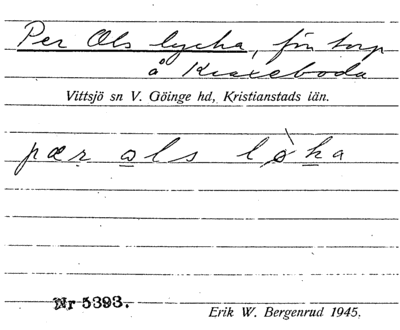 Per Ols lycka, förr torp
å Kraxeboda
Vittsjö sn V. Göinge hd, Kristianstads län.
pær ols l ka
Nr 5393.
Erik W. Bergenrud 1945.